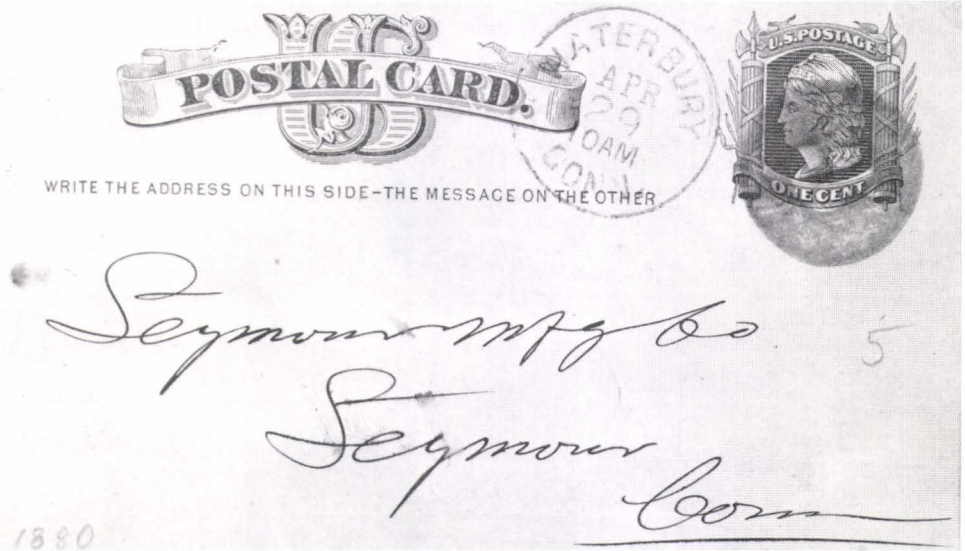 US
POSTAL CARD.
WATERBURY
APR
29
10AM
CONN.
U.S. POSTAGE
ONE CENT
WRITE THE ADDRESS ON THIS SIDE–THE MESSAGE ON THE OTHER
Seymour Mfg Co
5
Seymour
Conn
1880